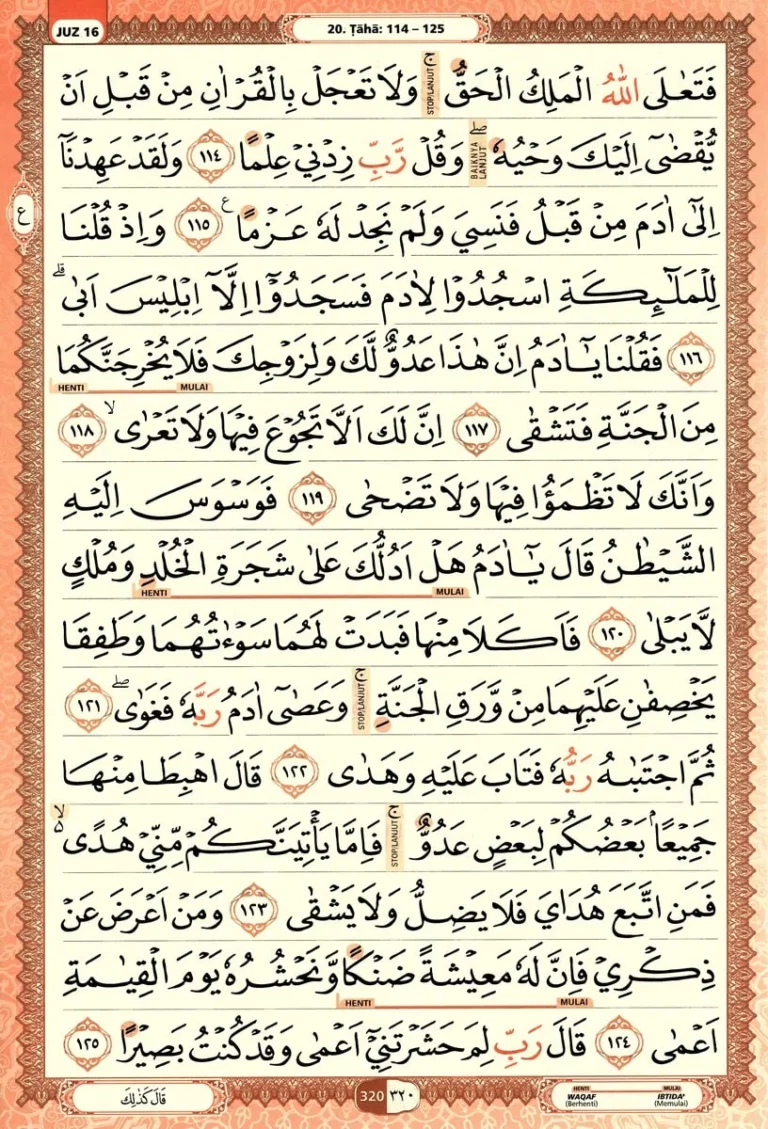 JUZ 16
20. Ṭāhā: 114 – 125
فَتَعٰلَى اللّٰهُ الْمَلِكُ الْحَقُّ ۚ STOP/LANJUT وَلَا تَعْجَلْ بِالْقُرْاٰنِ مِنْ قَبْلِ اَنْ
يُّقْضٰٓى اِلَيْكَ وَحْيُهٗ ۖ BAIKNYA LANJUT وَقُلْ رَّبِّ زِدْنِيْ عِلْمًا ١١٤ وَلَقَدْ عَهِدْنَآ
ع
اِلٰٓى اٰدَمَ مِنْ قَبْلُ فَنَسِيَ وَلَمْ نَجِدْ لَهٗ عَزْمًا ࣖ ١١٥ وَاِذْ قُلْنَا
لِلْمَلٰۤىِٕكَةِ اسْجُدُوْا لِاٰدَمَ فَسَجَدُوْٓا اِلَّآ اِبْلِيْسَ اَبٰى ۗ
١١٦ فَقُلْنَا يٰٓاٰدَمُ اِنَّ هٰذَا عَدُوٌّ لَّكَ وَلِزَوْجِكَ فَلَا يُخْرِجَنَّكُمَا
HENTI MULAI
مِنَ الْجَنَّةِ فَتَشْقٰى ١١٧ اِنَّ لَكَ اَلَّا تَجُوْعَ فِيْهَا وَلَا تَعْرٰى ۙ ١١٨
وَاَنَّكَ لَا تَظْمَؤُا فِيْهَا وَلَا تَضْحٰى ١١٩ فَوَسْوَسَ اِلَيْهِ
الشَّيْطٰنُ قَالَ يٰٓاٰدَمُ هَلْ اَدُلُّكَ عَلٰى شَجَرَةِ الْخُلْدِ وَمُلْكٍ
HENTI MULAI
لَّا يَبْلٰى ١٢٠ فَاَكَلَا مِنْهَا فَبَدَتْ لَهُمَا سَوْءٰتُهُمَا وَطَفِقَا
يَخْصِفٰنِ عَلَيْهِمَا مِنْ وَّرَقِ الْجَنَّةِ ۚ STOP/LANJUT وَعَصٰٓى اٰدَمُ رَبَّهٗ فَغَوٰى ۖ ١٢١
ثُمَّ اجْتَبٰىهُ رَبُّهٗ فَتَابَ عَلَيْهِ وَهَدٰى ١٢٢ قَالَ اهْبِطَا مِنْهَا
جَمِيْعًاۢ بَعْضُكُمْ لِبَعْضٍ عَدُوٌّ ۚ STOP/LANJUT فَاِمَّا يَأْتِيَنَّكُمْ مِّنِّيْ هُدًى ۙ
فَمَنِ اتَّبَعَ هُدَايَ فَلَا يَضِلُّ وَلَا يَشْقٰى ١٢٣ وَمَنْ اَعْرَضَ عَنْ
ذِكْرِيْ فَاِنَّ لَهٗ مَعِيْشَةً ضَنْكًا وَّنَحْشُرُهٗ يَوْمَ الْقِيٰمَةِ
HENTI MULAI
اَعْمٰى ١٢٤ قَالَ رَبِّ لِمَ حَشَرْتَنِيْٓ اَعْمٰى وَقَدْ كُنْتُ بَصِيْرًا ١٢٥
قَالَ كَذٰلِكَ
320 ٣٢٠
HENTI MULAI
WAQAF IBTIDA'
(Berhenti) (Memulai)